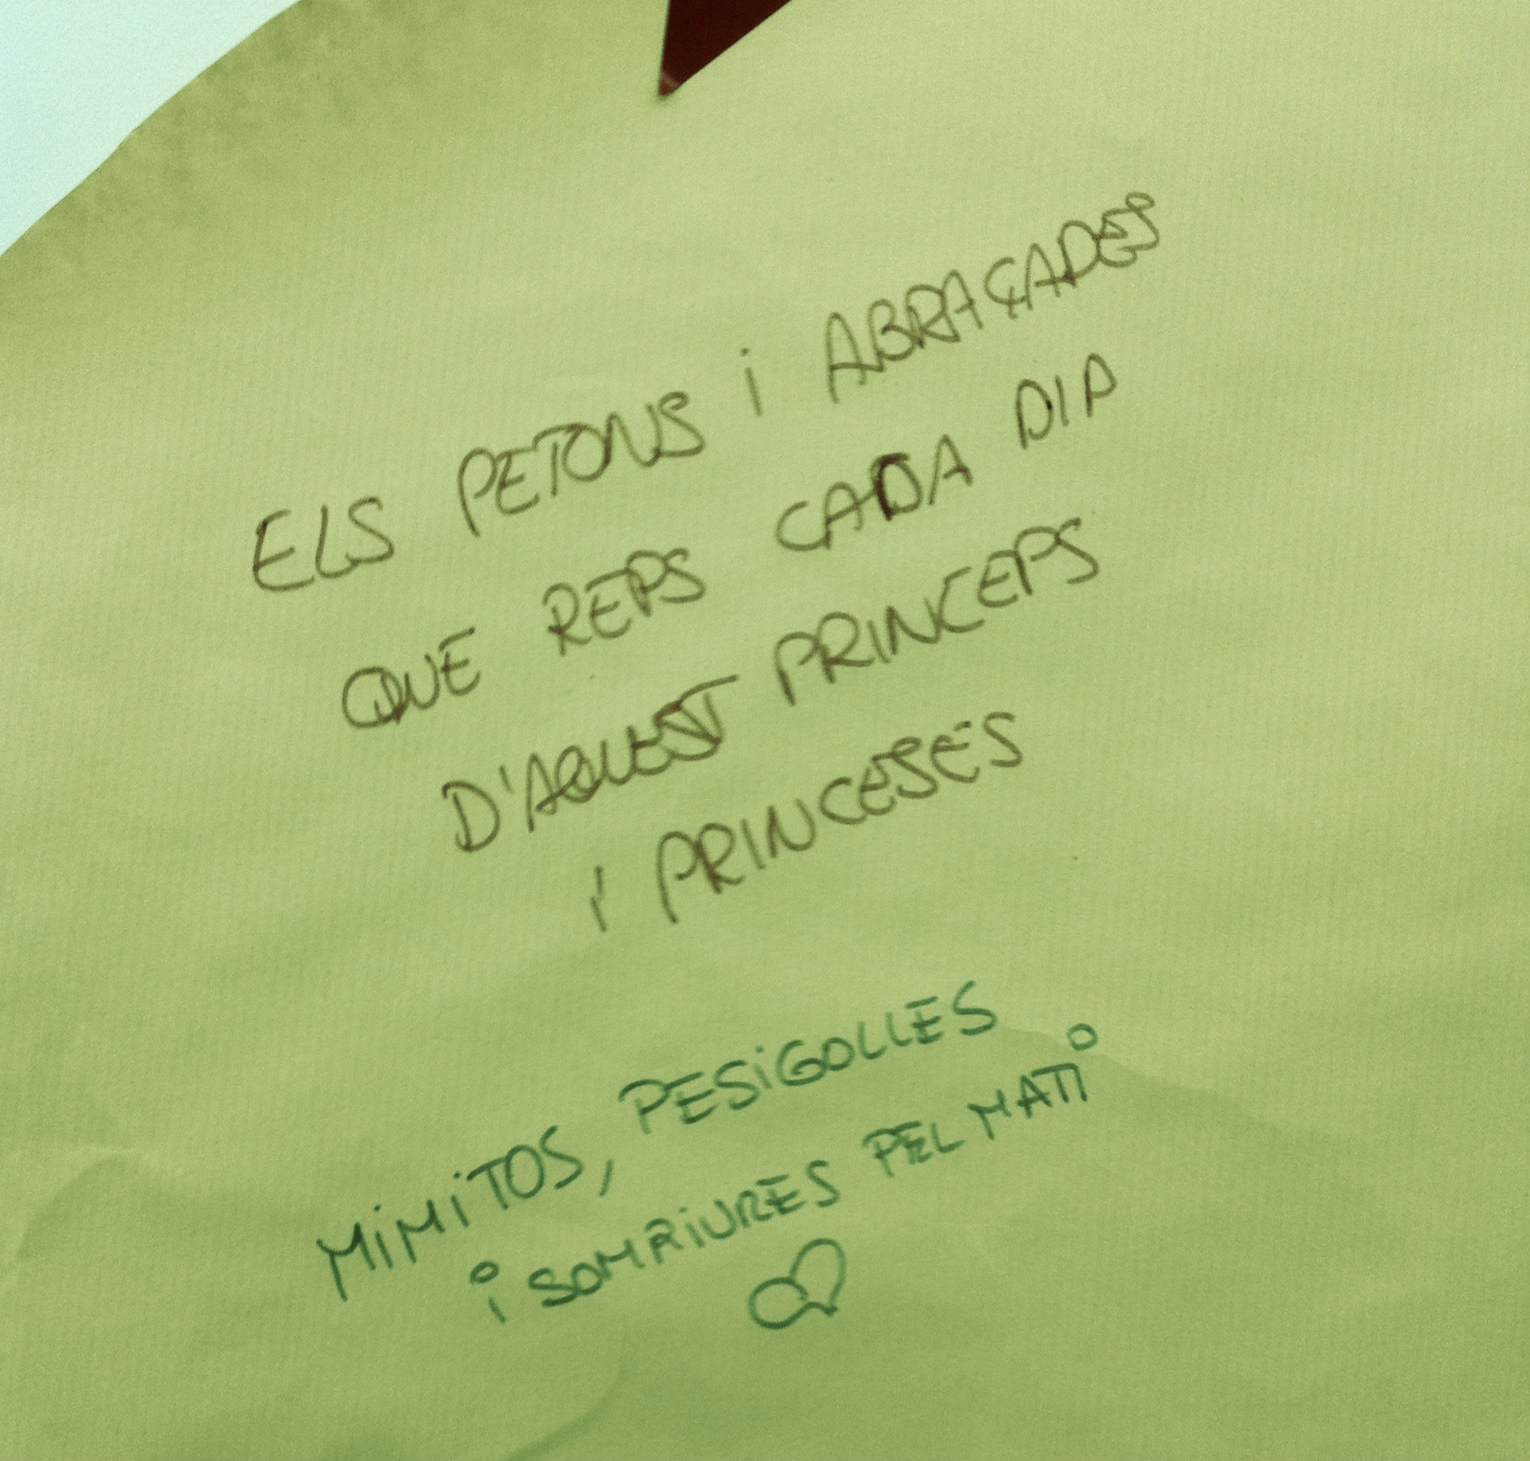 ELS PETONS i ABRAÇADES
QUE REPS CADA DIA
D'AQUEST PRINCEPS
i PRINCESES
MiMiTOS, PESiGOLLES
i SOMRiURES PEL MATi